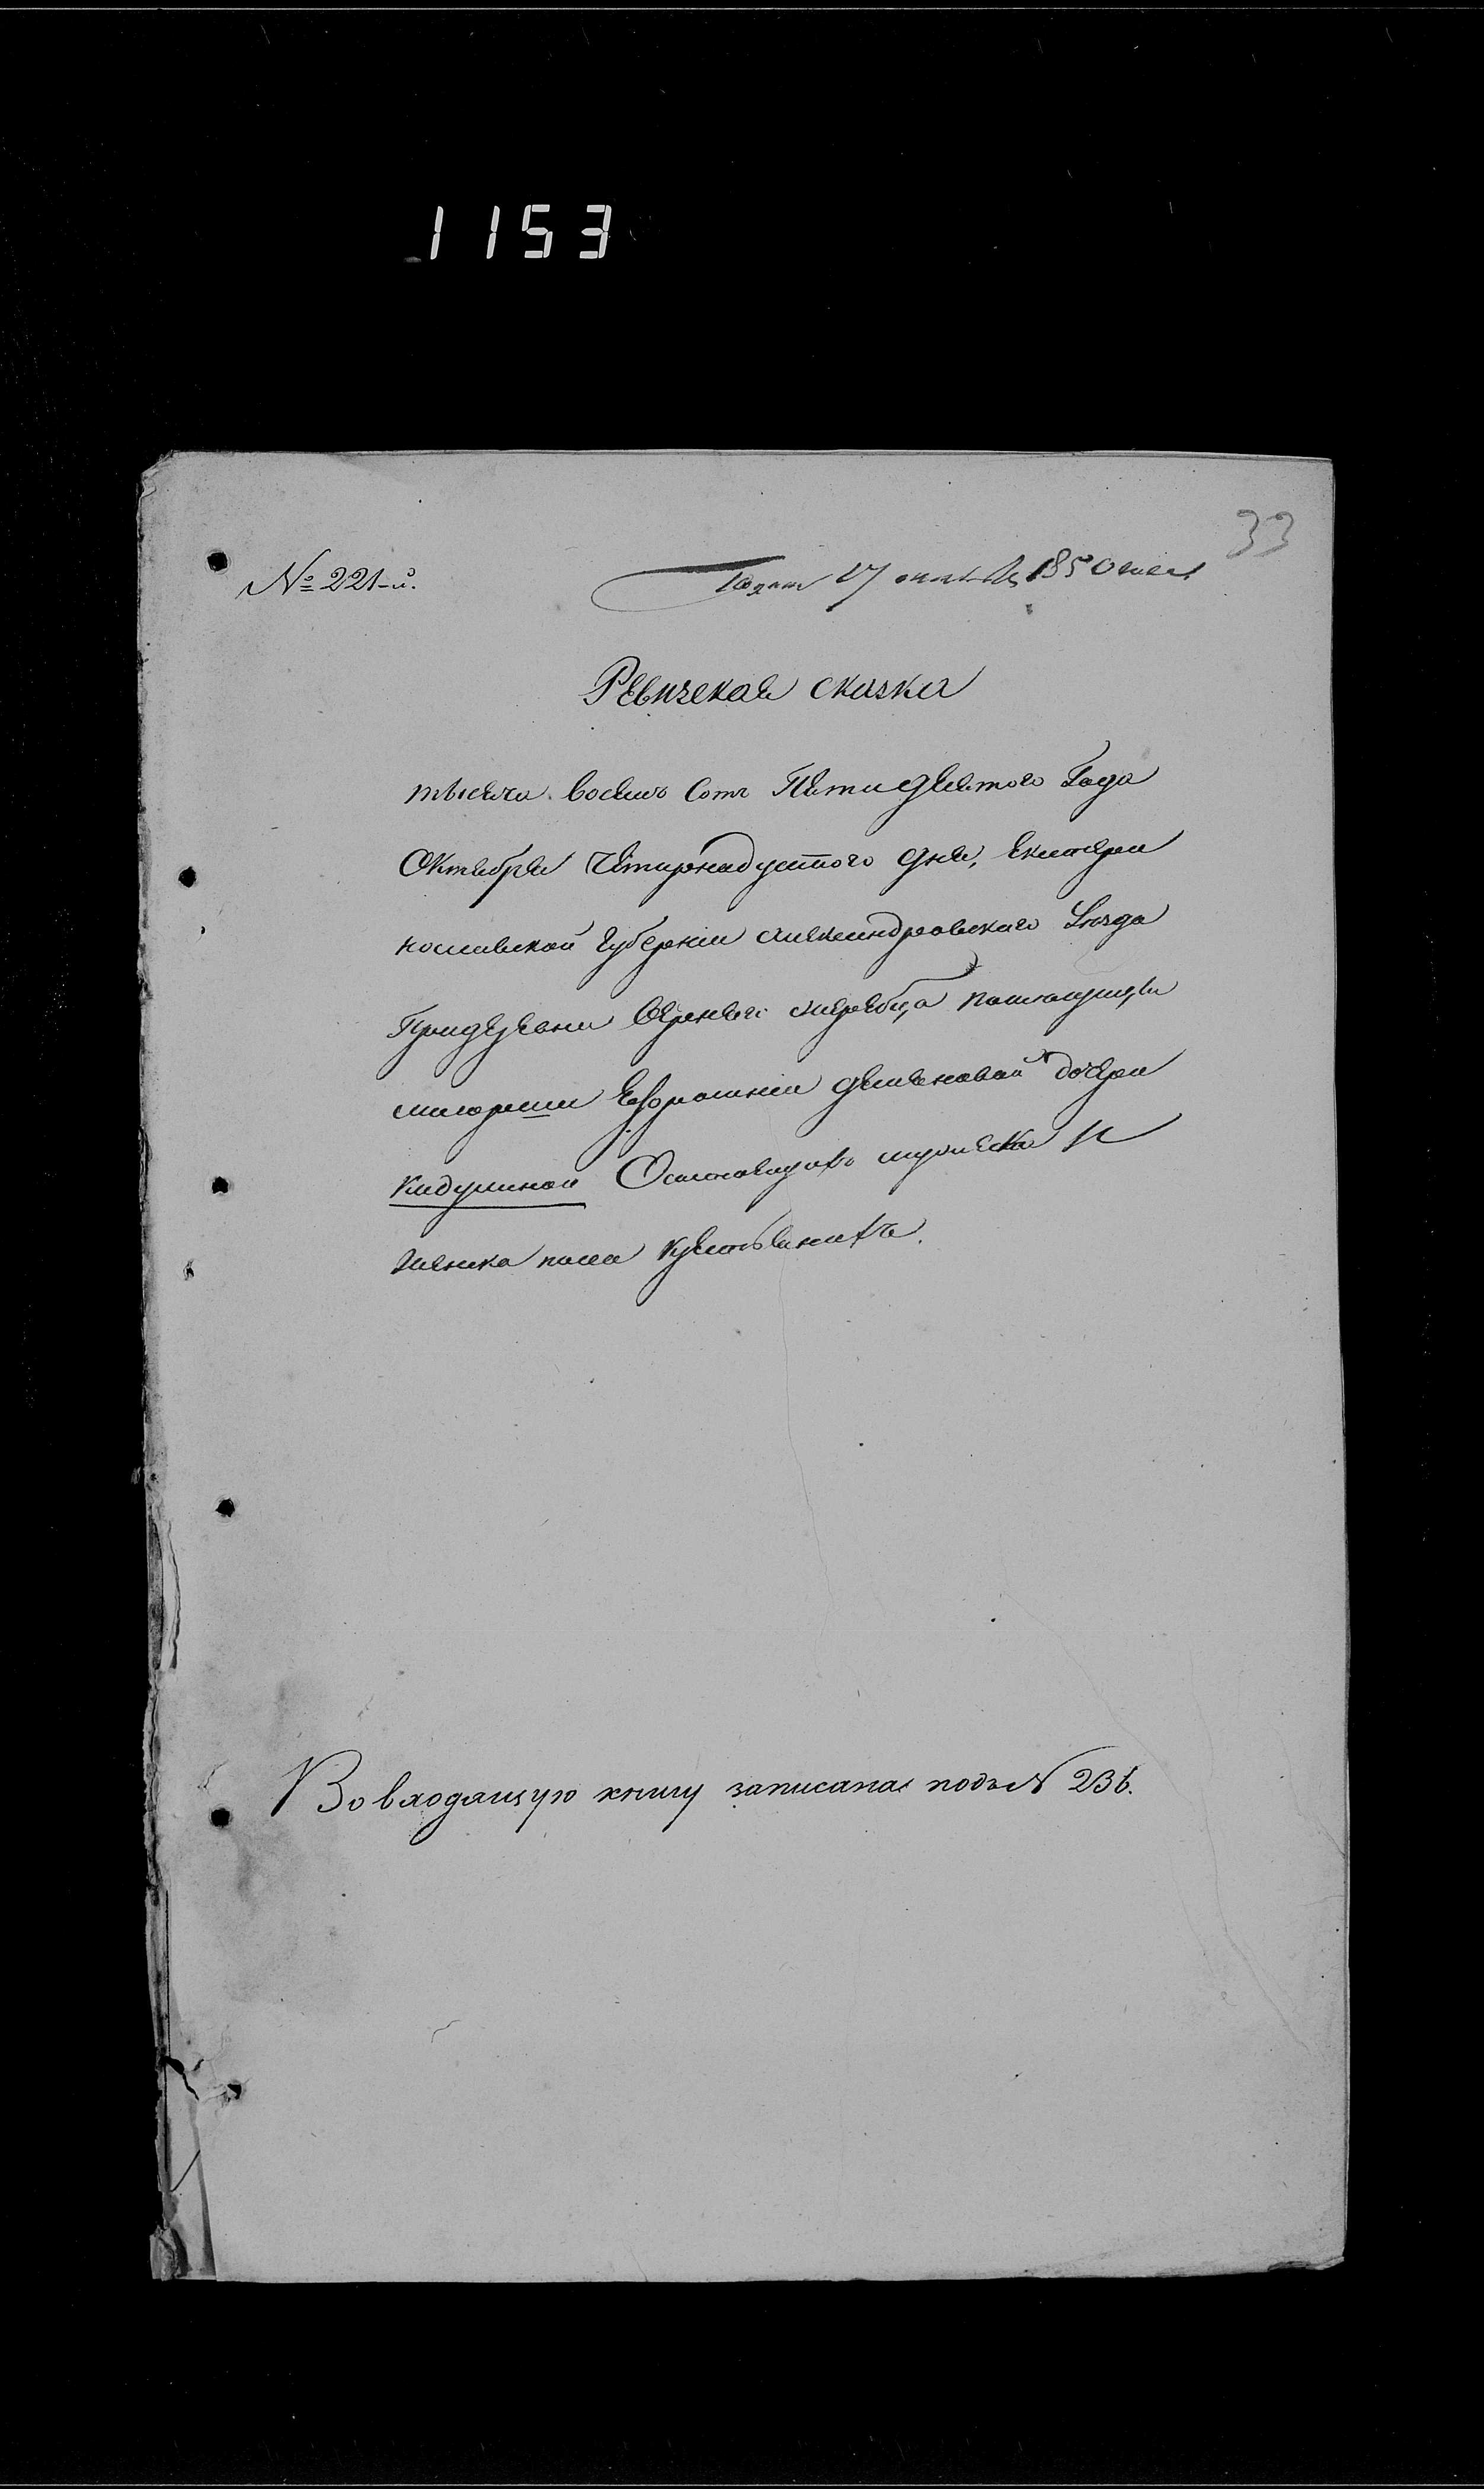 1153
33
№ 221-й.
Подана 17 октября 1850 года
Ревизская сказка
тысяча восемь сотъ Пятидесятого Года
Октября Четырнадцатого дня, Екатери
нославской Губерніи Александровского Уезда
При деревни помещицы
маіорши Ефросиніи Демяновой дочери
Кидулиной О состоящихъ мужеска и
женска пола крестьянахъ.
Во входящую книгу записана подъ № 236.